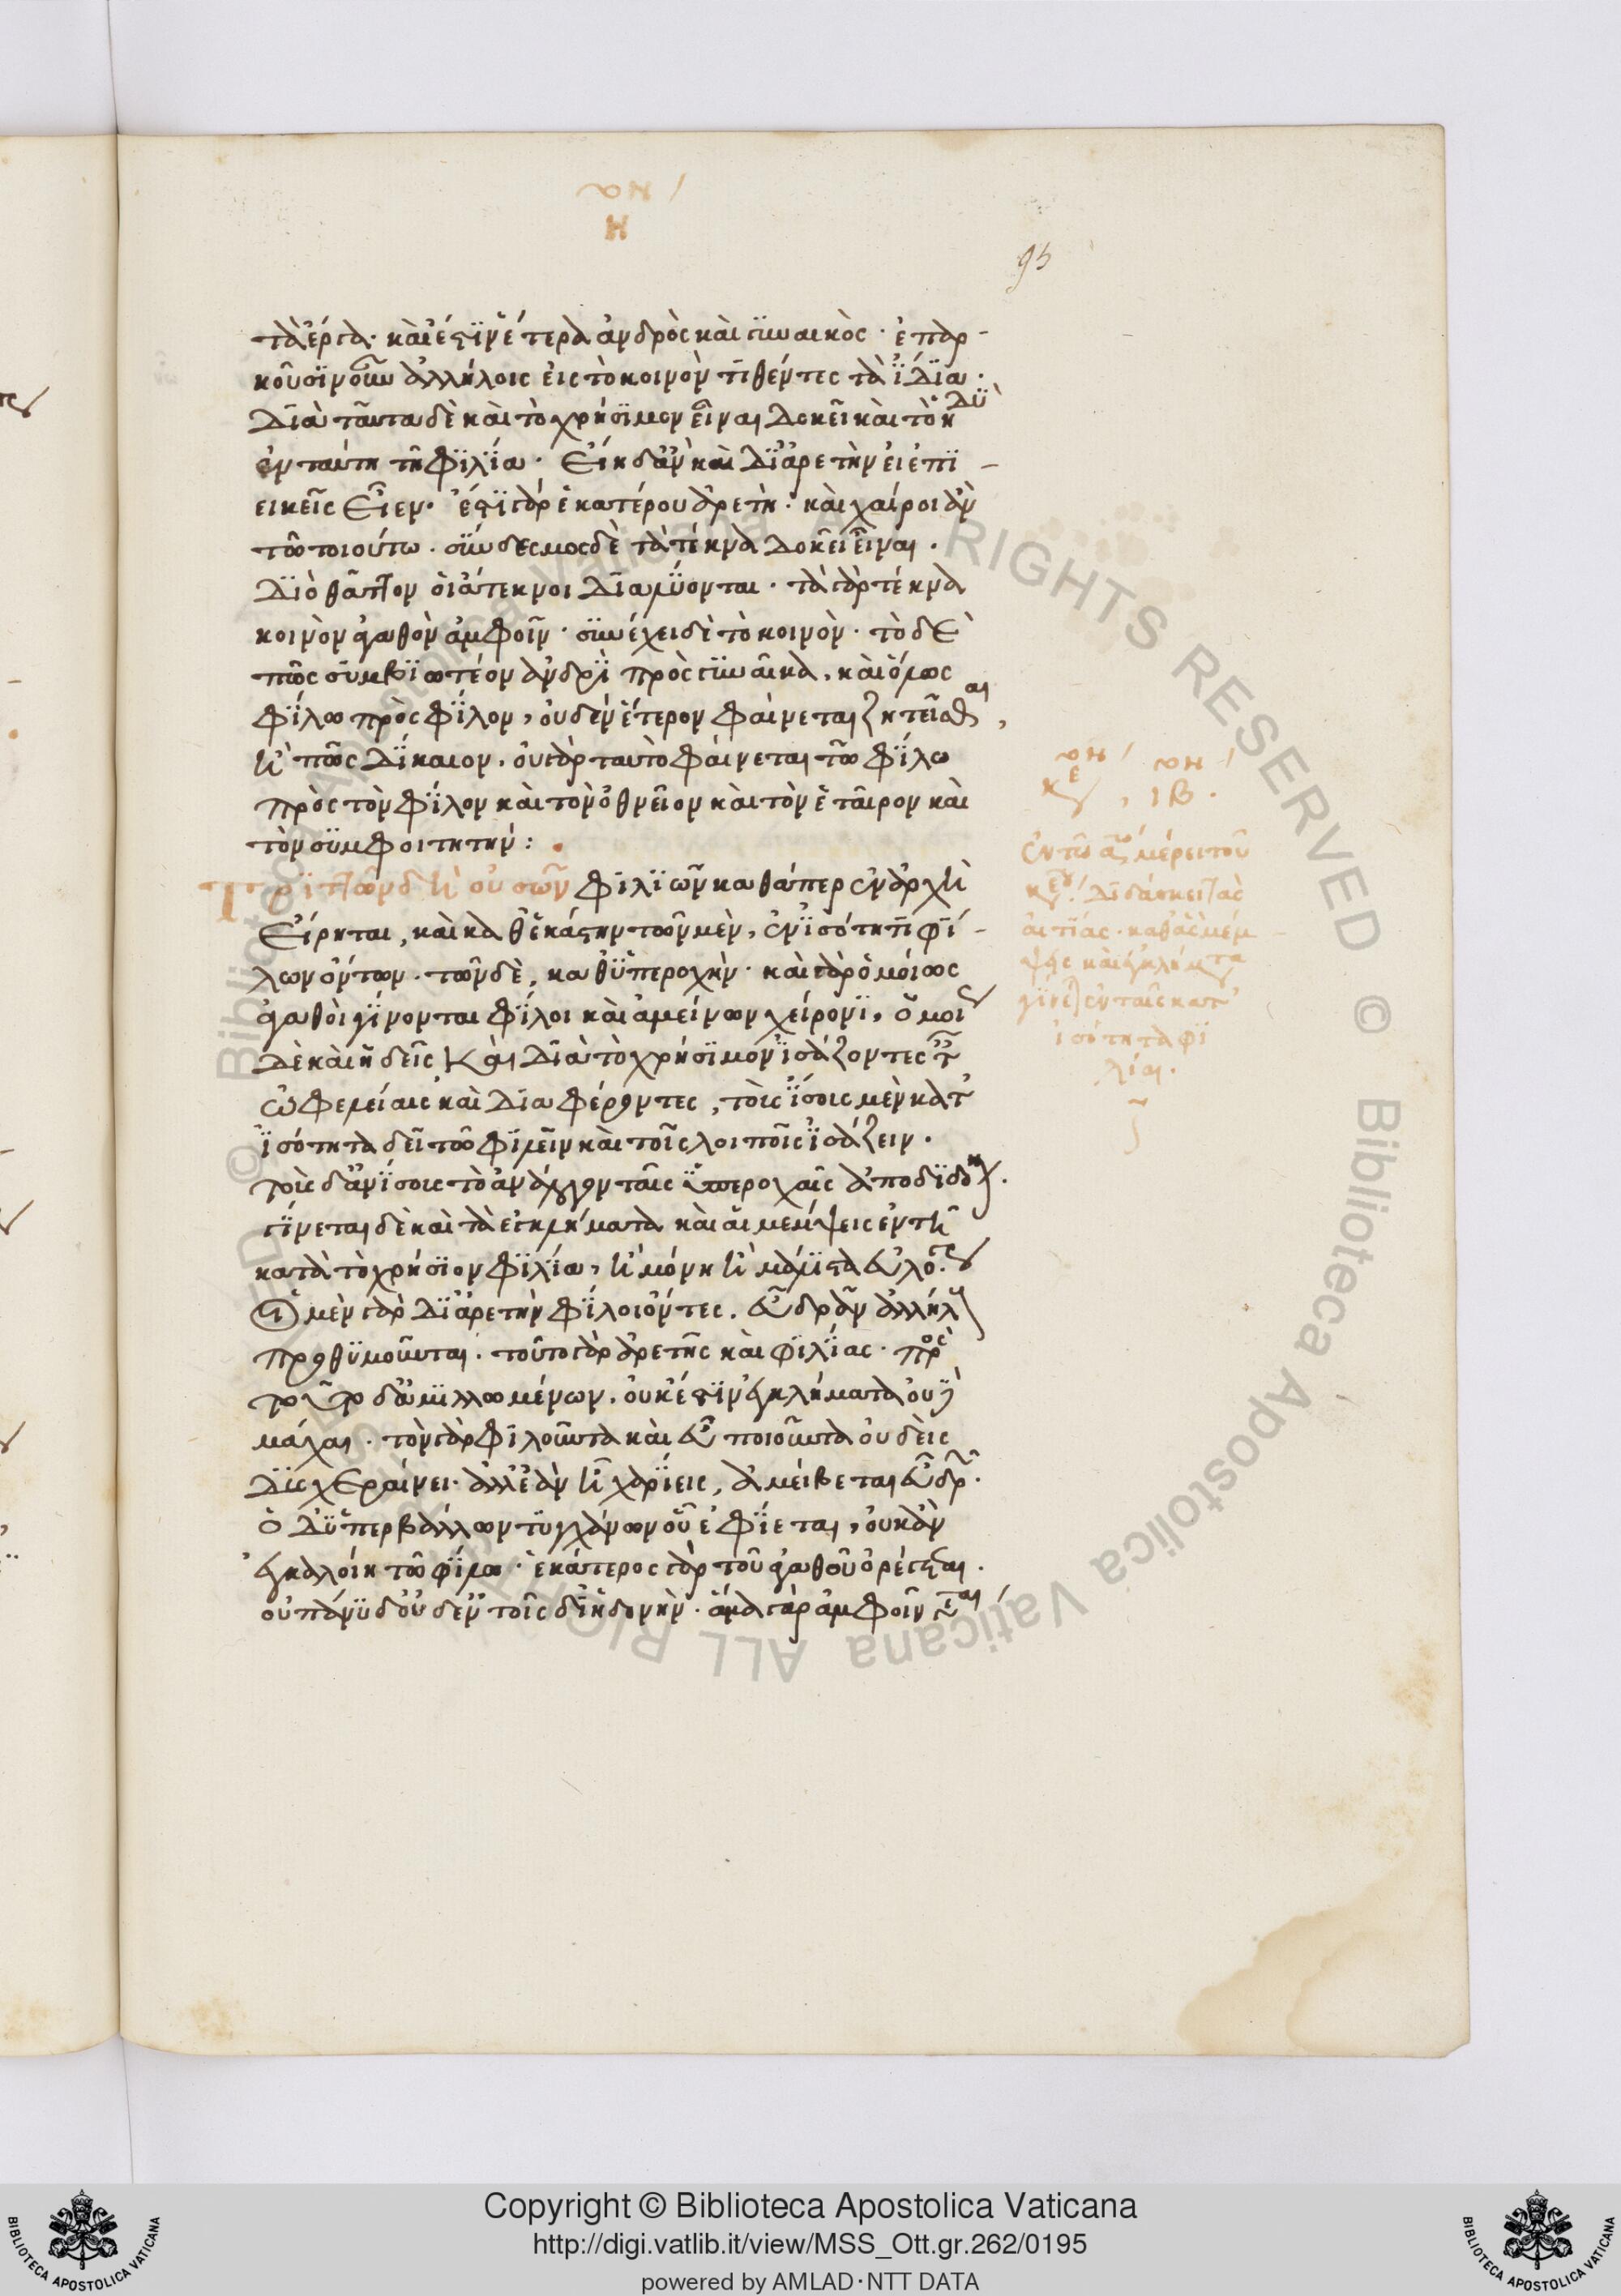 Η
95
τὰ ἔργα· καὶ ἔστιν ἕτερα ἀνδρὸς καὶ γυναικός· ἐπαρ-
κοῦσιν οὖν ἀλλήλοις εἰς τὸ κοινὸν τιθέντες τὰ ἴδια·
διὰ ταῦτα δὲ καὶ τὸ χρήσιμον εἶναι δοκεῖ καὶ τὸ ἡδὺ
ἐν ταύτη τῆ φιλία· εἴη δ' ἂν καὶ δι' ἀρετὴν εἰ ἐπι-
εικεῖς εἶεν· ἔστι γὰρ ἑκατέρου ἀρετή· καὶ χαίροι ἂν
τῶ τοιούτω· σύνδεσμος δὲ τὰ τέκνα δοκεῖ εἶναι·
διὸ θᾶττον οἱ ἄτεκνοι διαλύονται· τὰ γὰρ τέκνα
κοινὸν ἀγαθὸν ἀμφοῖν· συνέχει δὲ τὸ κοινόν· τὸ δὲ
πῶς συμβιωτέον ἀνδρὶ πρὸς γυναῖκα, καὶ ὅμως
φίλω πρὸς φίλον, οὐδὲν ἕτερον φαίνεται ζητεῖσθαι,
ἢ πῶς δίκαιον, οὐ γὰρ ταυτὸ φαίνεται τῶ φίλω
πρὸς τὸν φίλον καὶ τὸν ὀθνεῖον καὶ τὸν ἑταῖρον καὶ
τὸν συμφοιτητήν:
Τριττῶν δὴ οὐσῶν φιλιῶν καθάπερ ἐν ἀρχῆ
εἴρηται, καὶ καθ' ἑκάστην τῶν μὲν, ἐν ἰσότητι φί-
λων ὄντων· τῶν δὲ, καθ' ὑπεροχήν· καὶ γὰρ ὁμοίως
ἀγαθοὶ γίνονται φίλοι καὶ ἀμείνων χείρονι, ὁμοί
δὲ καὶ ἡδεῖς καὶ διὰ τὸ χρήσιμον ἰσάζοντες τ
ὠφελείαις καὶ διαφέροντες, τοῖς ἴσοις μὲν κατ'
ἰσότητα δεῖ τῶ φιλεῖν καὶ τοῖς λοιποῖς ἰσάζειν·
τοῖς δ' ἀνίσοις τὸ ἀνάλογον ταῖς ὑπεροχαῖς ἀποδιδόν.
γίνεται δὲ καὶ τὰ ἐγκλήματα καὶ αἱ μέμψεις ἐν τῆ
κατὰ τὸ χρήσιον φιλία, ἢ μόνη ἢ μάλιστα εὐλό
οἱ μὲν γὰρ δι' ἀρετὴν φίλοι ὄντες. εὖ δρᾶν ἀλλήλ
προθυμοῦνται· τοῦτο γὰρ ἀρετῆς καὶ φιλίας· πρὸς
τοῦτο δ' ἁμιλλωμένων, οὐκ ἔστιν ἐγκλήματα οὐδὲ
μάχαι· τὸν γὰρ φιλοῦντα καὶ εὖ ποιοῦντα οὐδεὶς
δυσχεραίνει· ἀλλ' ἐὰν ἦ χαρίεις, ἀμείβεται εὖ δρ.
ὁ δ' ὑπερβάλλων τυγχάνων οὗ ἐφίεται, οὐκ ἂν
ἐγκαλοίη τῶ φίλω· ἑκάτερος γὰρ τοῦ ἀγαθοῦ ὀρέγεται.
οὐ πάνυ δ' οὐδ' ἐν τοῖς δι' ἡδονήν· ἅμα γὰρ ἀμφοῖν
ιβ.
ἐν τῶ μέρει τοῦ
διδάσκει τὰς
αἰτίας· καθ' ἃς μέμ
ψεις καὶ ἐγκλήματα
γίνε ἐν ταῖς κατ'
ἰσότητα φι
λίαι.
© Biblioteca Apostolica Vaticana ALL RIGHTS RESERVED
© Biblioteca Apostolica Vaticana ALL RIGHTS RESERVED
Copyright © Biblioteca Apostolica Vaticana
http://digi.vatlib.it/view/MSS_Ott.gr.262/0195
powered by AMLAD·NTT DATA
BIBLIOTECA APOSTOLICA VATICANA
BIBLIOTECA APOSTOLICA VATICANA